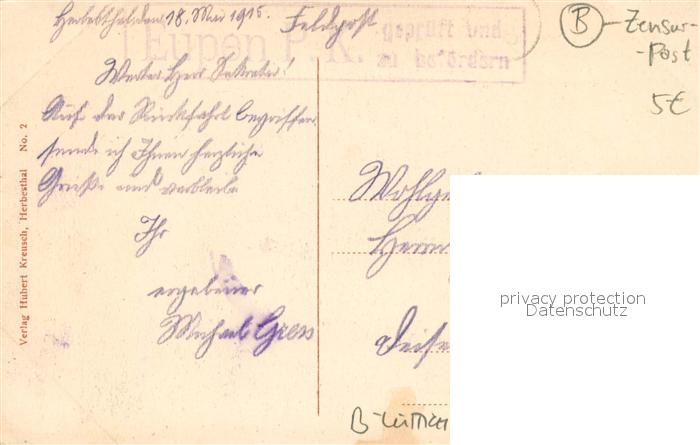 Herbesthal, den 18. Mai 1915.
Feldpost
Eupen P. K. geprüft und
zu befördern
B - Zensur-
-Post
5€
Werter Herr Sekretär!
Auf der Rückfahrt begriffen,
sende ich Ihnen herzliche
Grüße und verbleibe
Ihr
ergebener
Michael Gress
Verlag Hubert Kreusch, Herbesthal No. 2
Herrn
privacy protection
Datenschutz
B-Lüttich